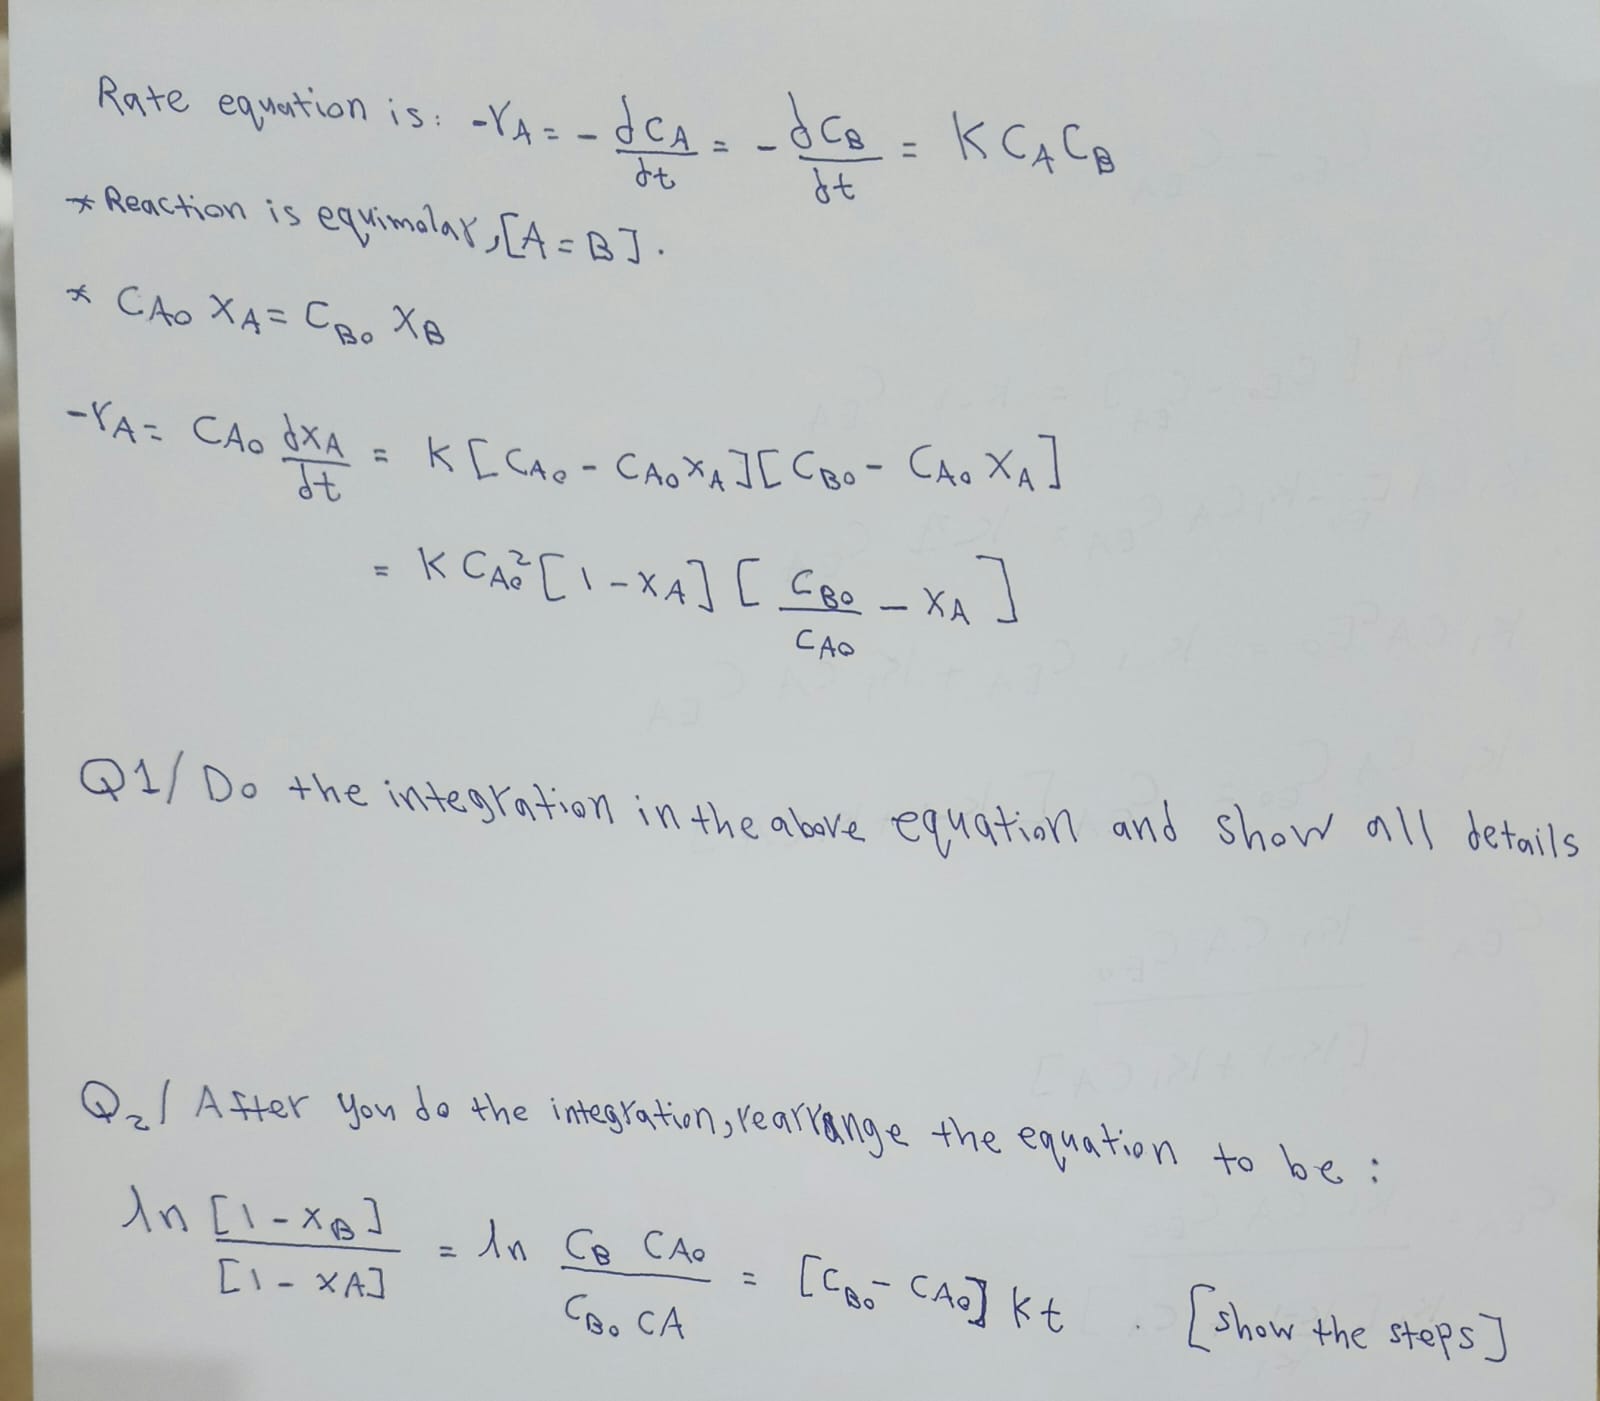 Rate equation is: -rA = - dCA/dt = - dCB/dt = K CA CB
* Reaction is equimolar, [A = B].
* CAo XA = CBo XB
-rA = CAo dXA/dt = K [CAo - CAo XA] [CBo - CAo XA]
= K CAo² [1 - XA] [CBo/CAo - XA]
Q1/ Do the integration in the above equation and show all details
Q2/ After you do the integration, rearrange the equation to be :
ln [1 - XB]/[1 - XA] = ln CB CAo/CBo CA = [CBo - CAo] Kt . [show the steps]